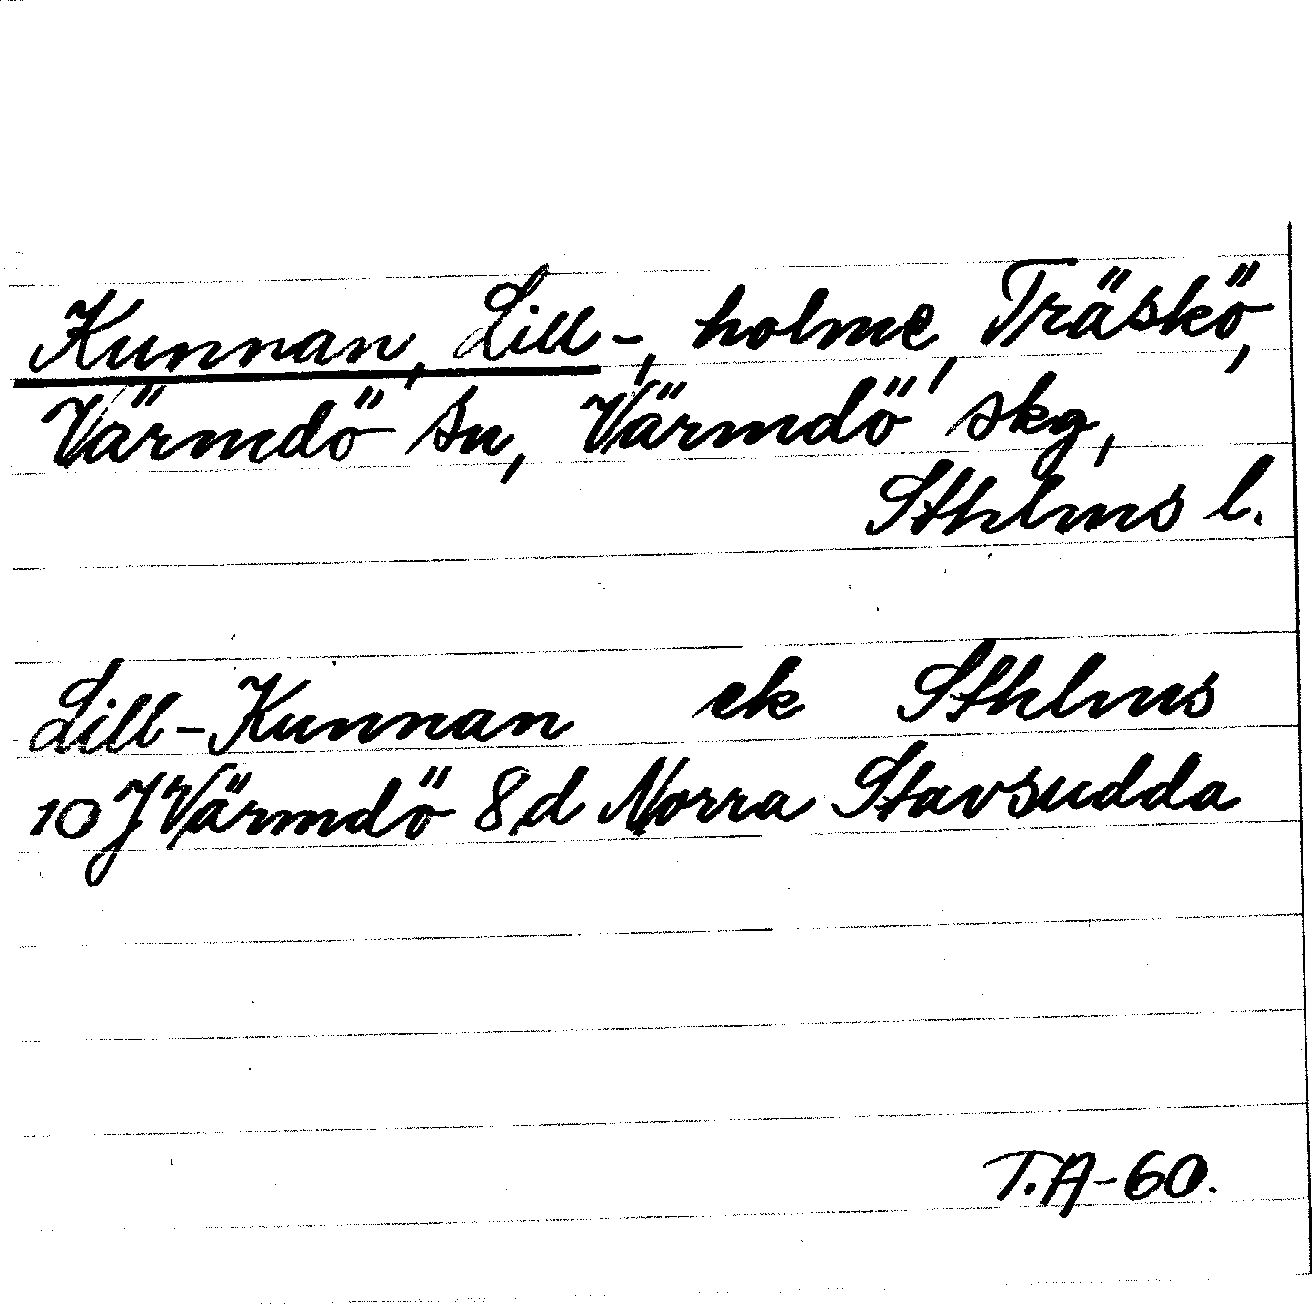 Kunnan, Lill-, holme, Träskö,
Värmdö sn, Värmdö skg,
Sthlms l.
Lill-Kunnan ek Sthlms
10J Värmdö 8d Norra Stavsudda
T.A-60.